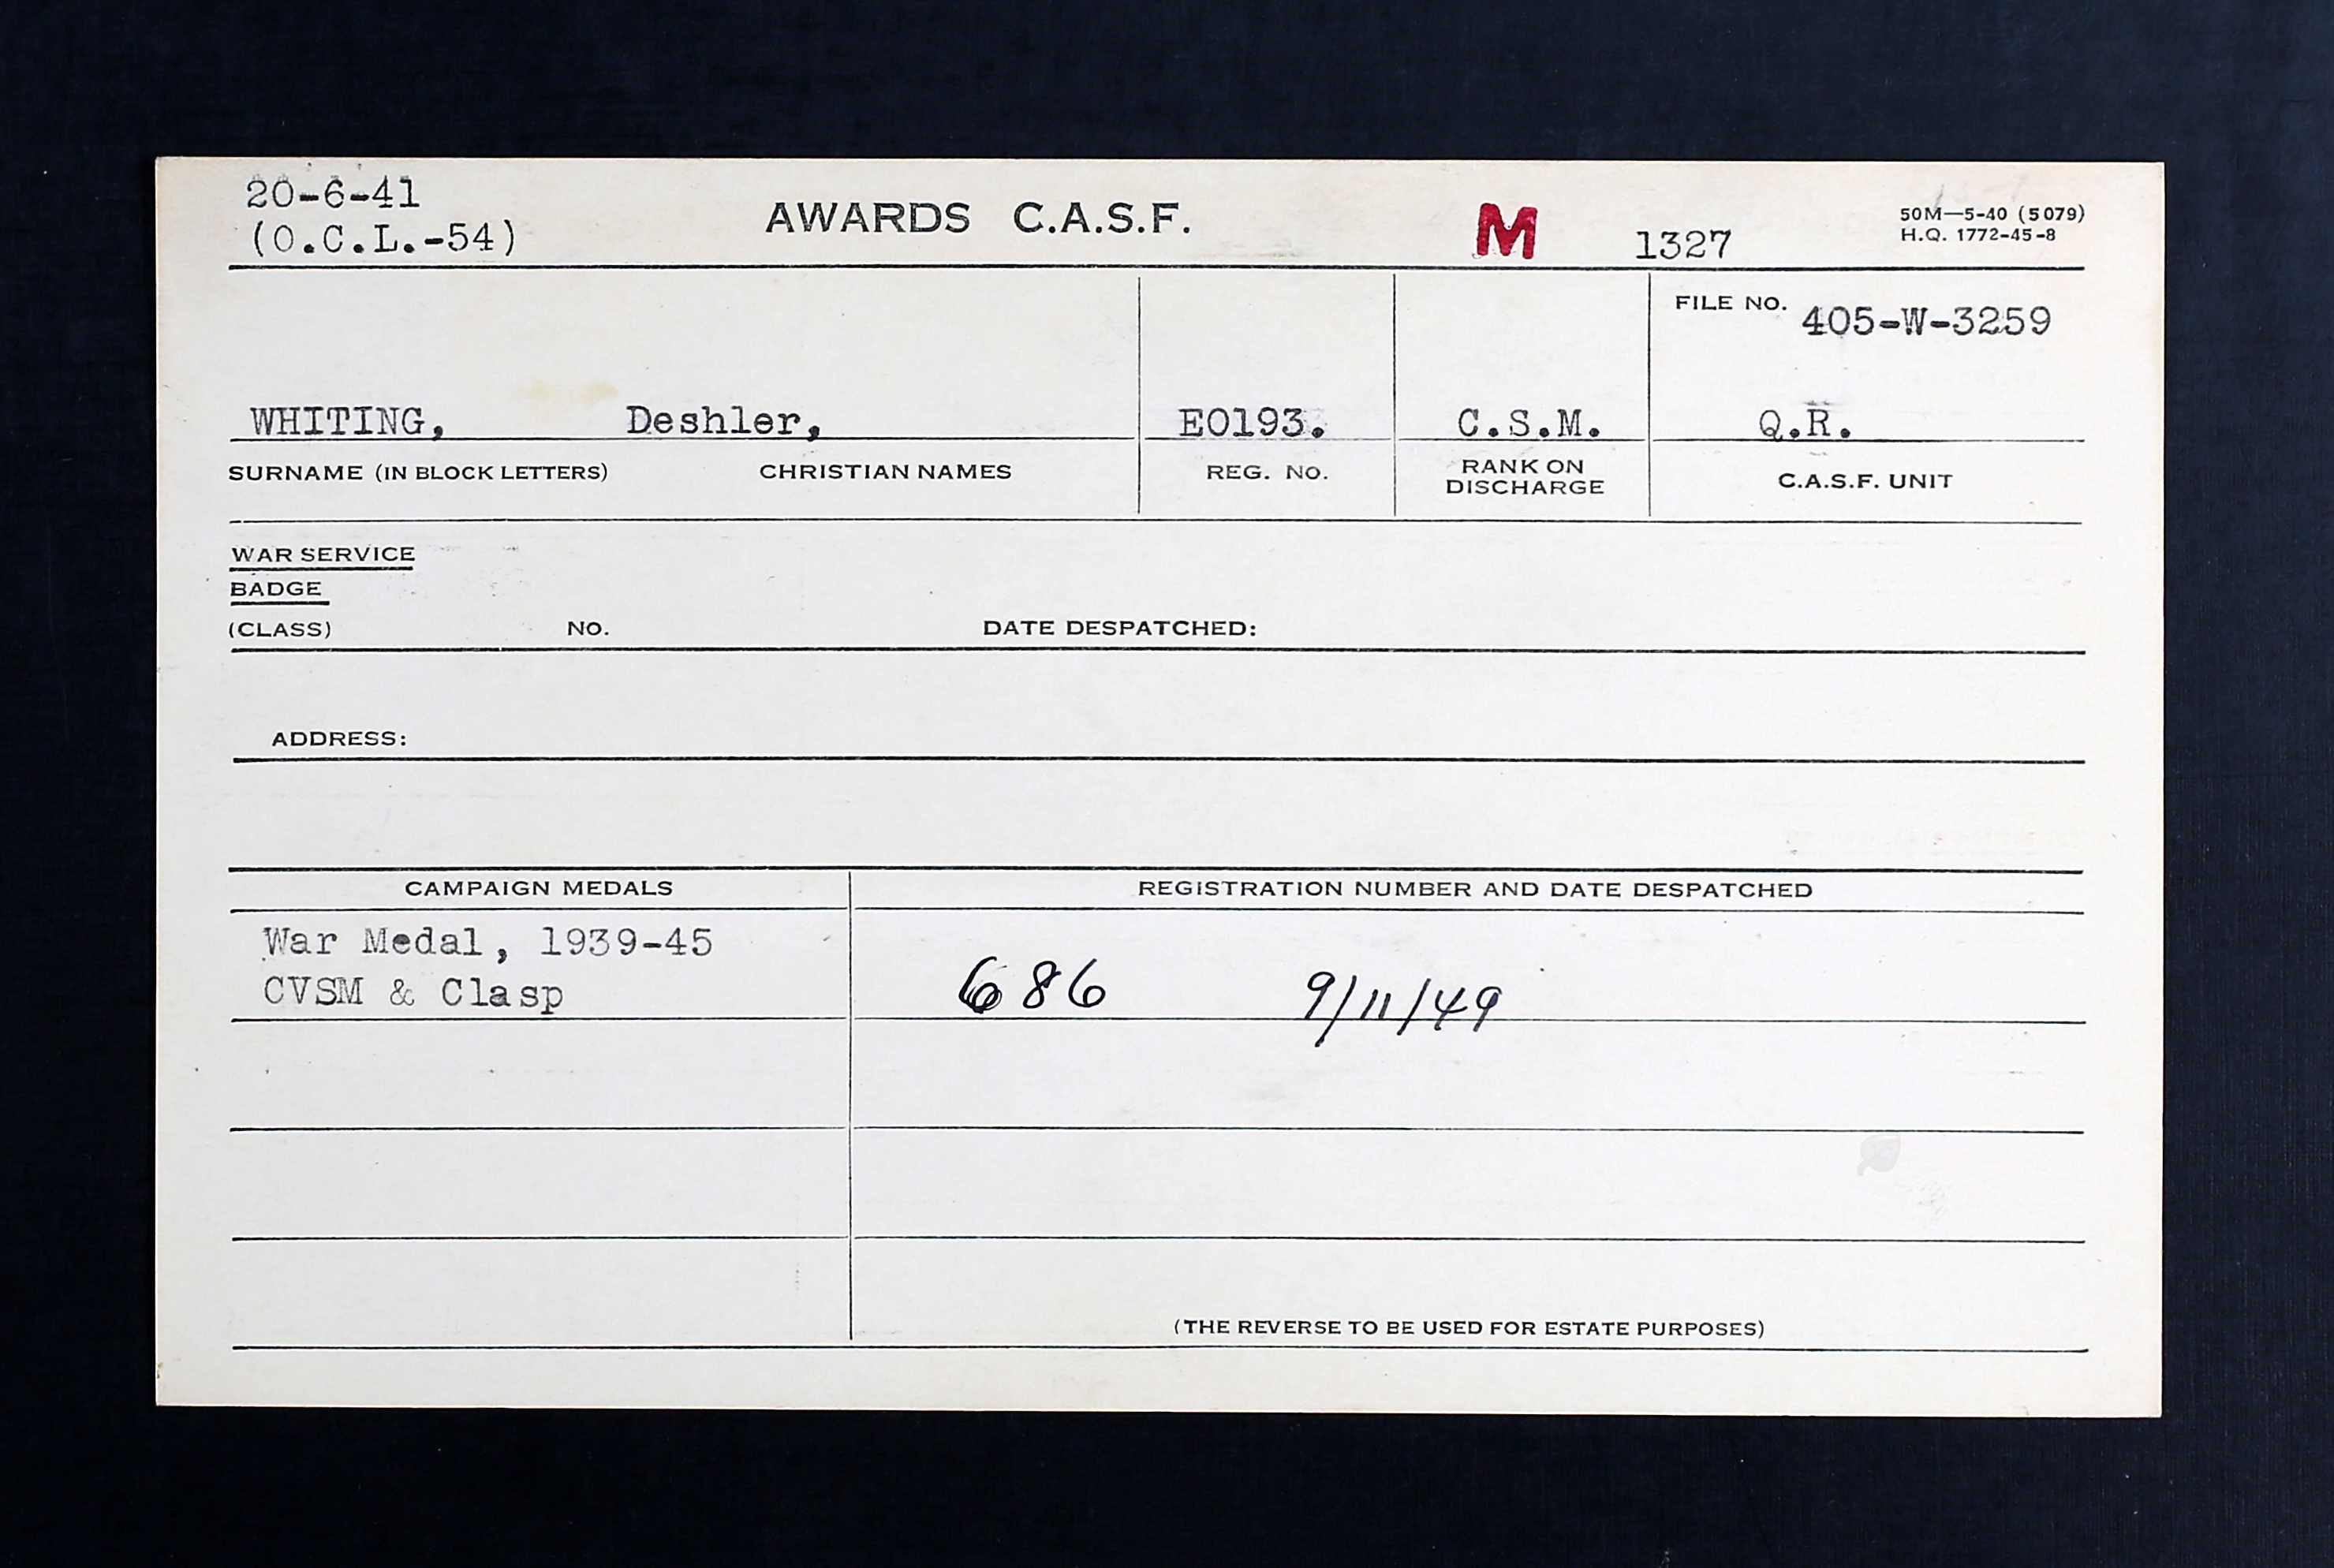 20-6-41
(O.C.L.-54)
AWARDS C.A.S.F.
M
1327
50M—5-40 (5079)
H.Q. 1772-45-8
FILE NO. 405-W-3259
WHITING, Deshler, E0193. C.S.M. Q.R.
SURNAME (IN BLOCK LETTERS) CHRISTIAN NAMES REG. NO. RANK ON DISCHARGE C.A.S.F. UNIT
WAR SERVICE
BADGE
(CLASS) NO. DATE DESPATCHED:
ADDRESS:
CAMPAIGN MEDALS REGISTRATION NUMBER AND DATE DESPATCHED
War Medal, 1939-45
CVSM & Clasp 686 9/11/49
(THE REVERSE TO BE USED FOR ESTATE PURPOSES)